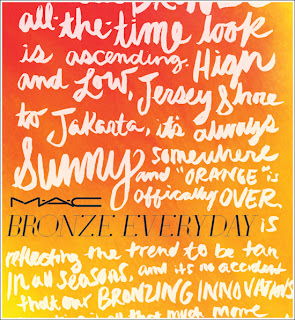 all-the-time look
is ascending. High
and Low, Jersey Shore
to Jakarta, it's always
Sunny somewhere
and "ORANGE" is
officially OVER.
MAC
BRONZE EVERYDAY is
reflecting the trend to be tan
In all seasons, and it's no accident
that our BRONZING INNOVATIONS
much more